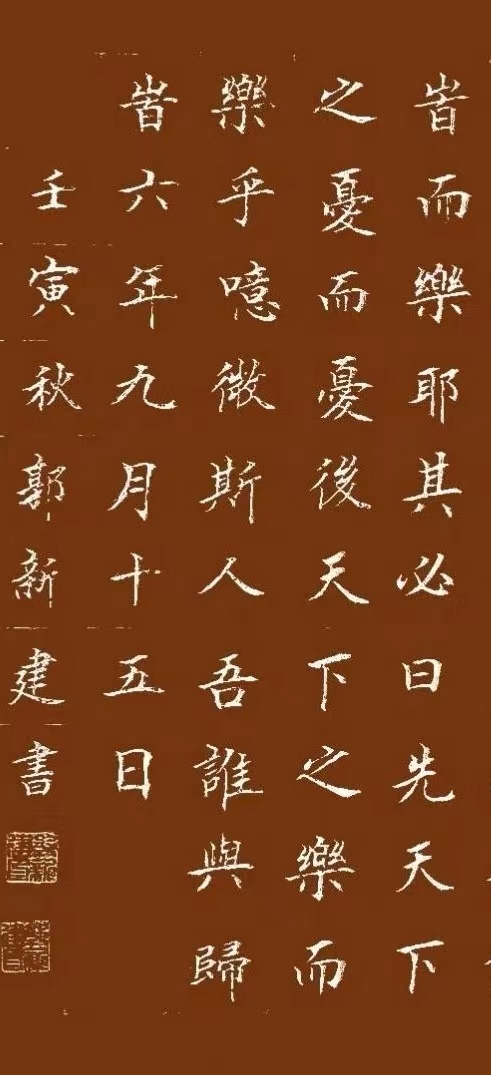 旹而樂耶其必曰先天下
之憂而憂後天下之樂而
樂乎噫微斯人吾誰與歸
旹六年九月十五日
壬寅秋郭新建書